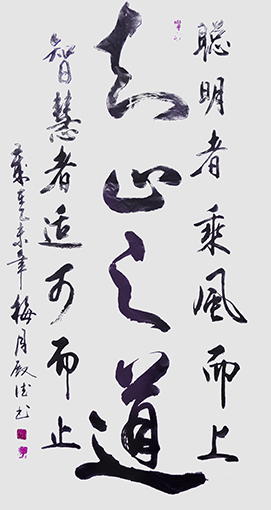 聪明者乘風而上
知止之道
智慧者适可而止
歲在乙未年梅月殷